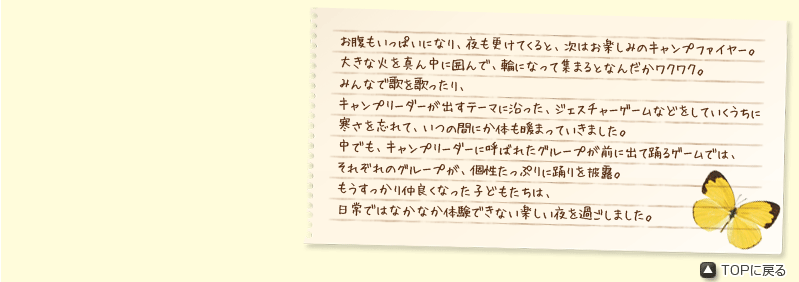 お腹もいっぱいになり、夜も更けてくると、次はお楽しみのキャンプファイヤー。
大きな火を真ん中に囲んで、輪になって集まるとなんだかワクワク。
みんなで歌を歌ったり、
キャンプリーダーが出すテーマに沿った、ジェスチャーゲームなどをしていくうちに
寒さを忘れて、いつの間にか体も暖まっていきました。
中でも、キャンプリーダーに呼ばれたグループが前に出て踊るゲームでは、
それぞれのグループが、個性たっぷりに踊りを披露。
もうすっかり仲良くなった子どもたちは、
日常ではなかなか体験できない楽しい夜を過ごしました。
TOPに戻る